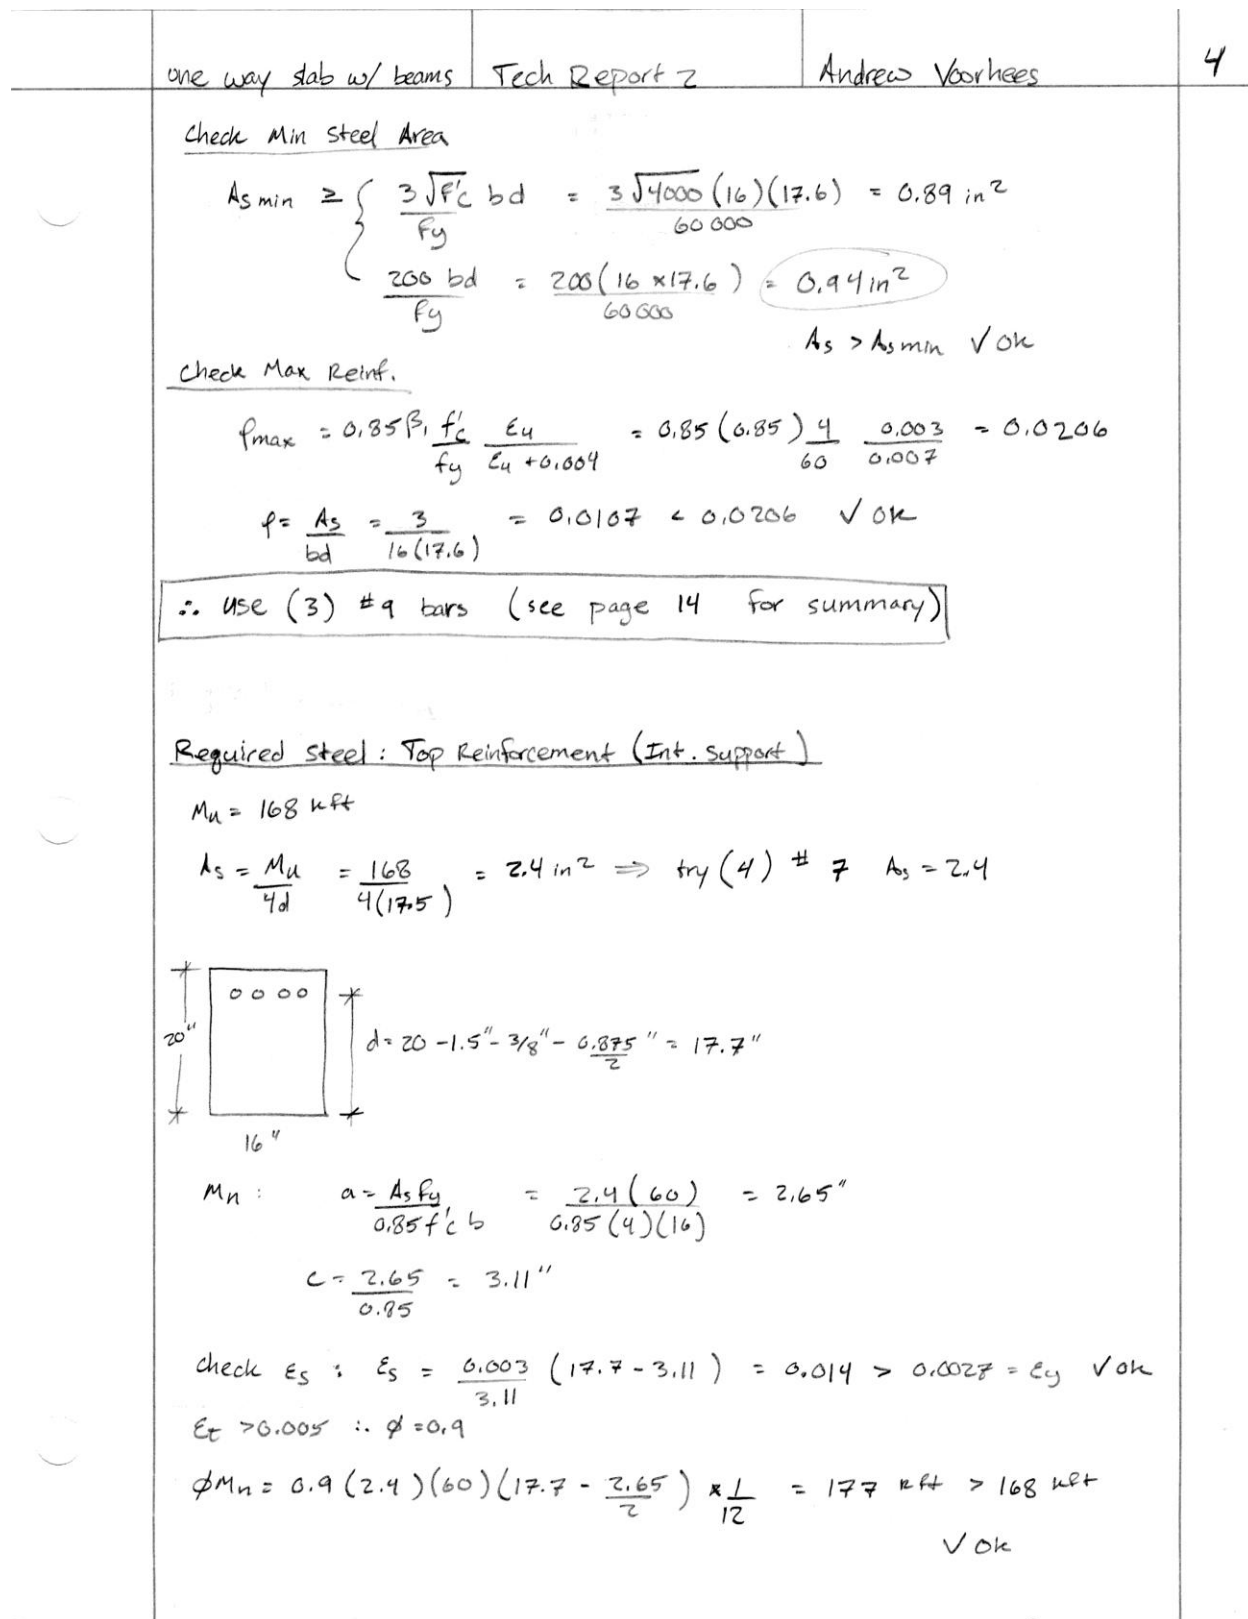 one way slab w/ beams Tech Report 2 Andrew Voorhees 4
Check Min Steel Area
As min ≥ { 3√f'c bd / fy = 3√4000 (16)(17.6) / 60000 = 0.89 in²
200 bd / fy = 200(16 x17.6) / 60000 = 0.94in²
As > As min √ OK
Check Max Reinf.
ρmax = 0.85β₁ f'c / fy εu / εu +0.004 = 0.85 (0.85) 4 / 60 0.003 / 0.007 = 0.0206
ρ = As / bd = 3 / 16(17.6) = 0.0107 < 0.0206 √ OK
∴ use (3) #9 bars (see page 14 for summary)
Required Steel: Top Reinforcement (Int. Support)
Mu = 168 kft
As = Mu / 4d = 168 / 4(17.5) = 2.4 in² ⇒ try (4) # 7 As = 2.4
20"
d = 20 - 1.5" - 3/8" - 0.875 / 2 " = 17.7"
16"
Mn : a = Asfy / 0.85f'c b = 2.4(60) / 0.85(4)(16) = 2.65"
c = 2.65 / 0.85 = 3.11"
check εs : εs = 0.003 / 3.11 (17.7 - 3.11) = 0.014 > 0.0027 = εy √ ok
εt >0.005 ∴ φ = 0.9
φMn = 0.9(2.4)(60)(17.7 - 2.65 / 2) x 1 / 12 = 177 kft > 168 kft
√ OK